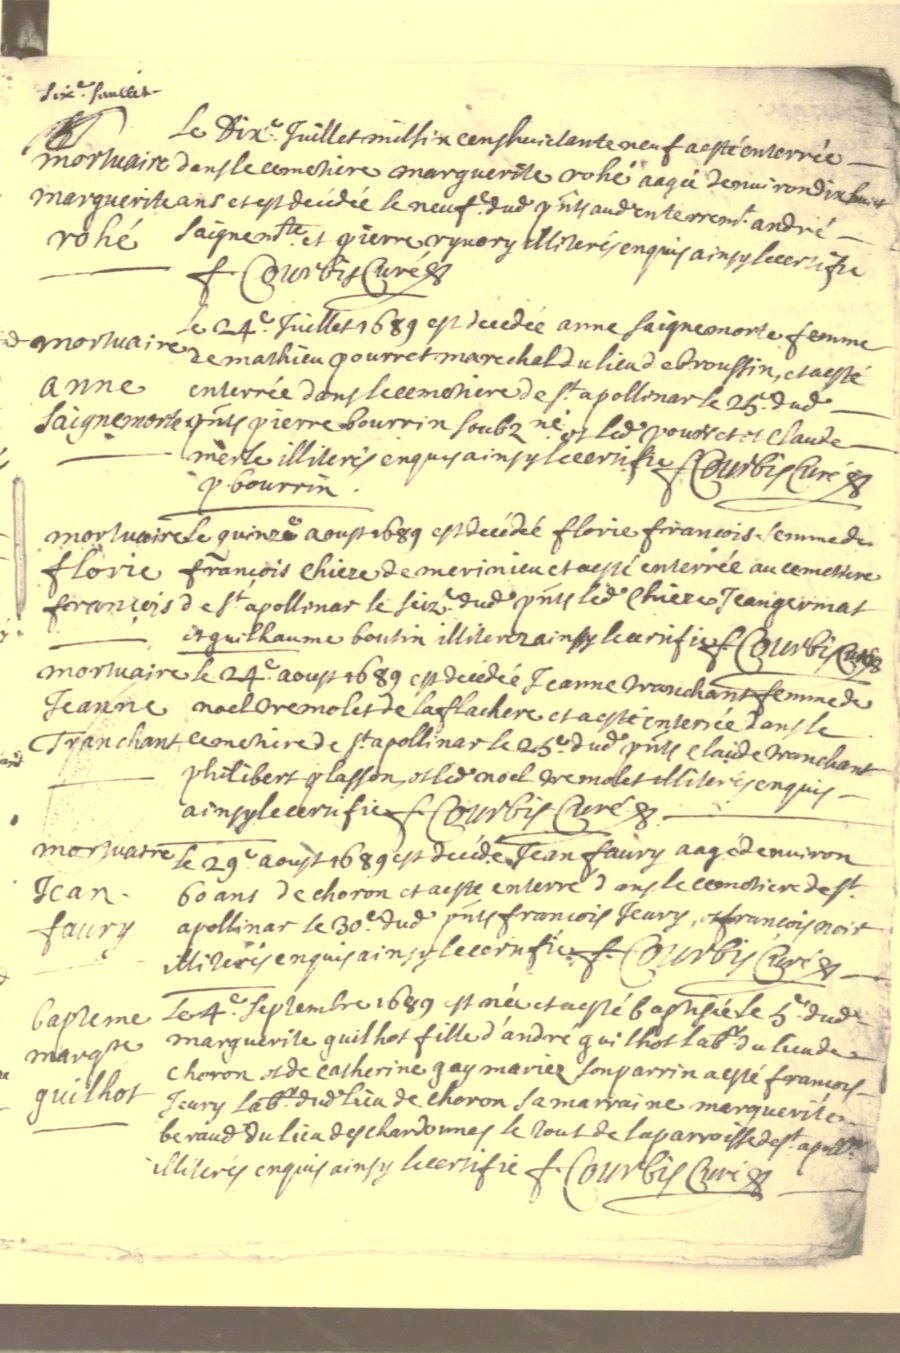 Six.e feuillet
Le Dix.e Juillet mil six cens huictante neuf a esté enterrée
mortuaire dans le cemetiere marguerite rohé aagée denuiron dix huict
marguerite ans et est decédée le neuf.e dud p̃nts aud enterrem.t andré
rohé Saignem.te et pierre ryuory illiterés enquis ainsy le certifie
f. Courbis Curé
le 24.e Juillet 1689 est decédée anne Saignemorte femme
mortuaire de mathieu pourret marechal du lieu de broussin, et a esté
anne enterrée dans le cemetiere de s.t apollinar le 25.e dud
Saignemorte p̃nts pierre bourrin soubz.né et led pourret et Claude
merle illiterés enquis ainsy le certifie f. Courbis Curé
p bourrin .
mortuaire le quinze aoust 1689 est decédée florie francois femme de
florie francois Chieze de merinieu et a esté enterrée au cemetiere
francois de s.t apollinar le seiz.e dud p̃nts led Chieze Jean germat
et guilhaume boutin illiterez ainsy le certifie f. Courbis Curé
mortuaire le 24.e aoust 1689 est decédée Jeanne tranchant femme de
Jeanne noel tremolet de la flachere et a esté enterrée dans le
Tranchant cemetiere de s.t apollinar le 25.e dud p̃nts claude tranchant
philibert plasson, et led noel tremolet illiterés enquis
ainsy le certifie f. Courbis Curé
mortuaire le 29.e aoust 1689 est decédé Jean faury aagé denuiron
Jean 60 ans de choron et a esté enterré dans le cemetiere de s.t
faury apollinar le 30.e dud p̃nts francois Jeury, et francois noir
illiterés enquis ainsy le certifie f. Courbis Curé
bapteme Le 4.e Septembre 1689 est née et a esté baptisée le 5.e dud
margte marguerite guilhot fille d'andré guilhot lab.r du lieu de
guilhot choron et de catherine gay mariez son parrin a esté francois
Jeury lab.r dud lieu de choron sa marraine marguerite
beraud du lieu des chardonnes le tout de la parroisse de s.t apoll.r
illiterés enquis ainsy le certifie f. Courbis Curé